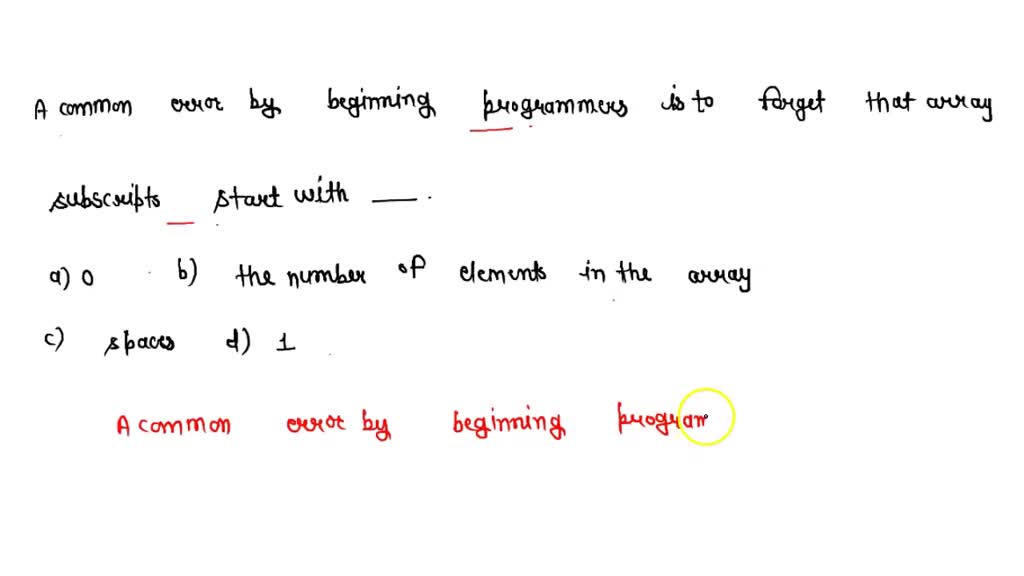 A common error by beginning programmers is to forget that array
subscripts _ start with ___.
a) 0 b) the number of elements in the array
c) spaces d) 1
A common error by beginning program